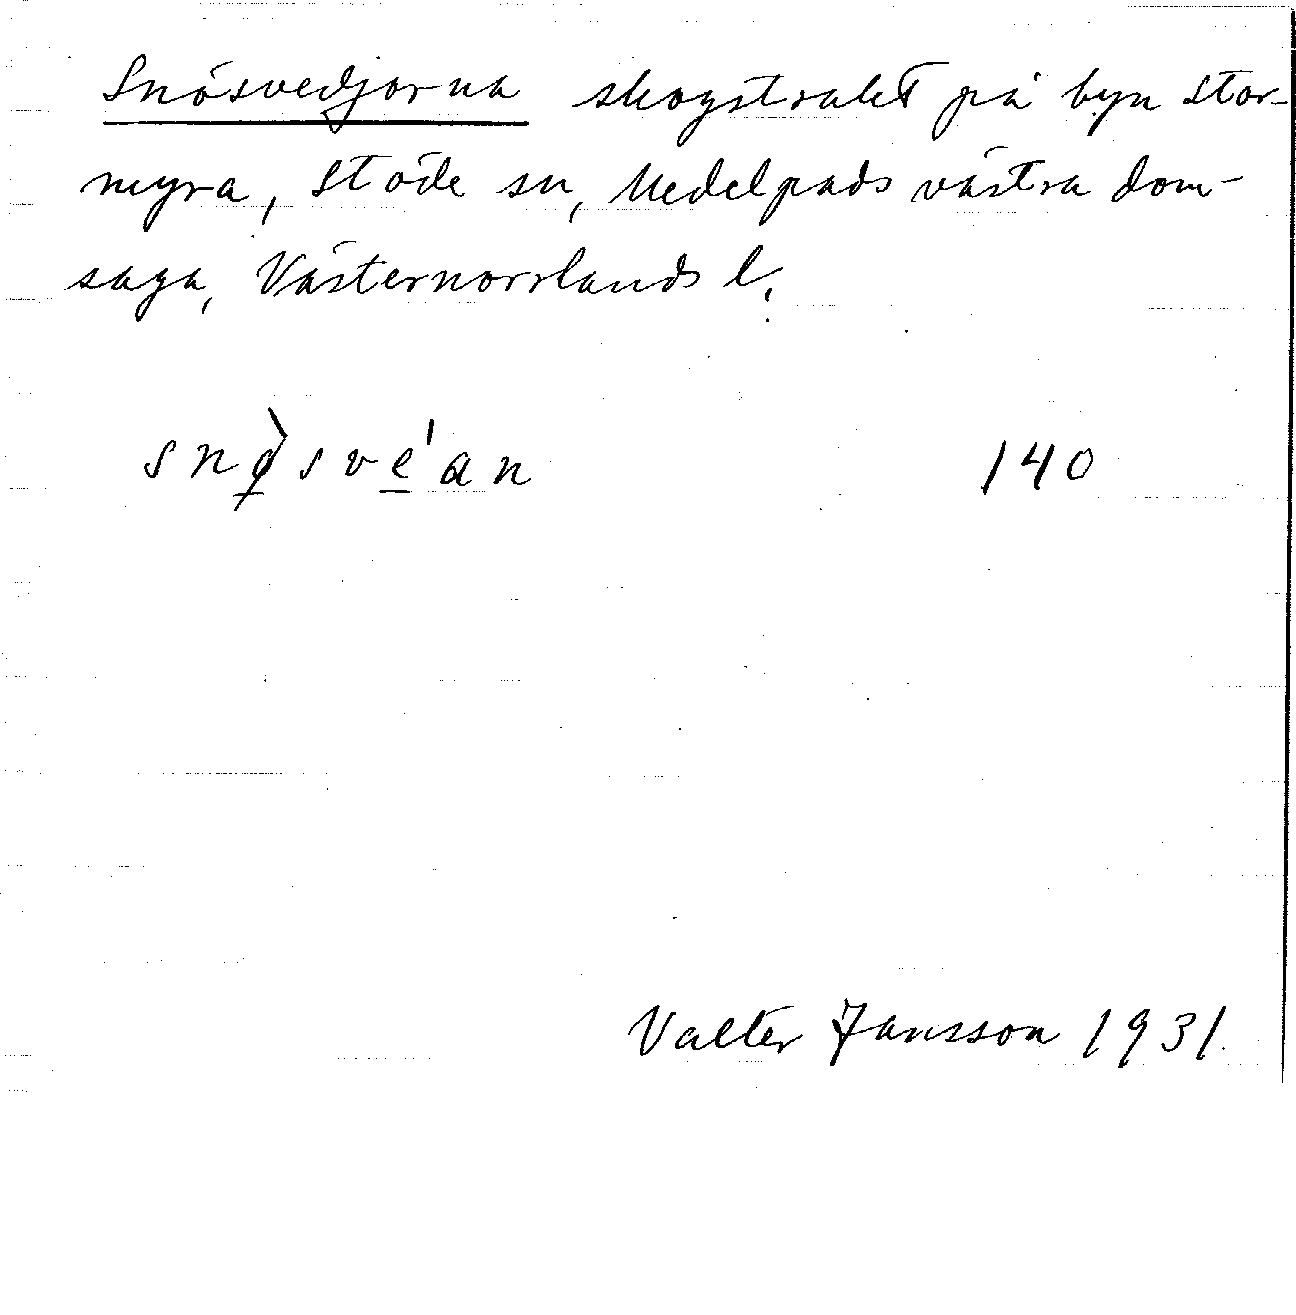 Snösvedjorna skogstrakt på byn Stor-
myra, Stöde sn, Medelpads västra dom-
saga, Västernorrlands l.
snø̱̀sve̱'an 140
Valter Jansson 1931.